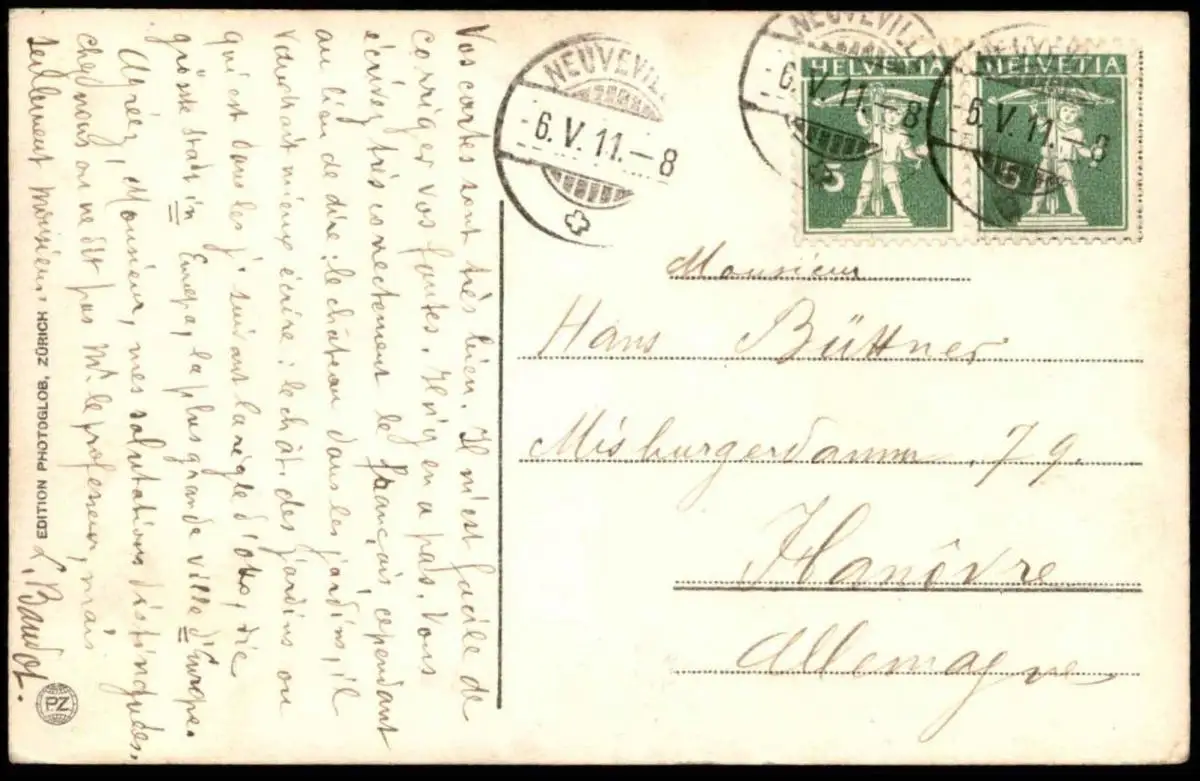 NEUVEVIL
6. V. 11.–8
NEUVEVILLE
6. V. 11.–8
NEUVEV
6. V. 11.–8
HELVETIA
5
HELVETIA
5
Vos cartes sont très bien. Il m'est facile de
corriger vos fautes. Il n'y en a pas. Vous
écrivez très correctement le français, cependant
au lieu de dire: le château dans les jardins, il
vaudrait mieux écrire: le chât. des jardins ou
qui est dans les j. suivant la règle d'Otto, die
grösste Stadt in Europa, la plus grande ville d'Europe.
Agréez, Monsieur, mes salutations distinguées.
chez nous on ne dit pas Mr. le professeur, mais
seulement monsieur.
L. Baudot.
Monsieur
Hans Büttner
Misburgerdamm 79.
Hanôvre
Allemagne
EDITION PHOTOGLOB, ZÜRICH
PZ